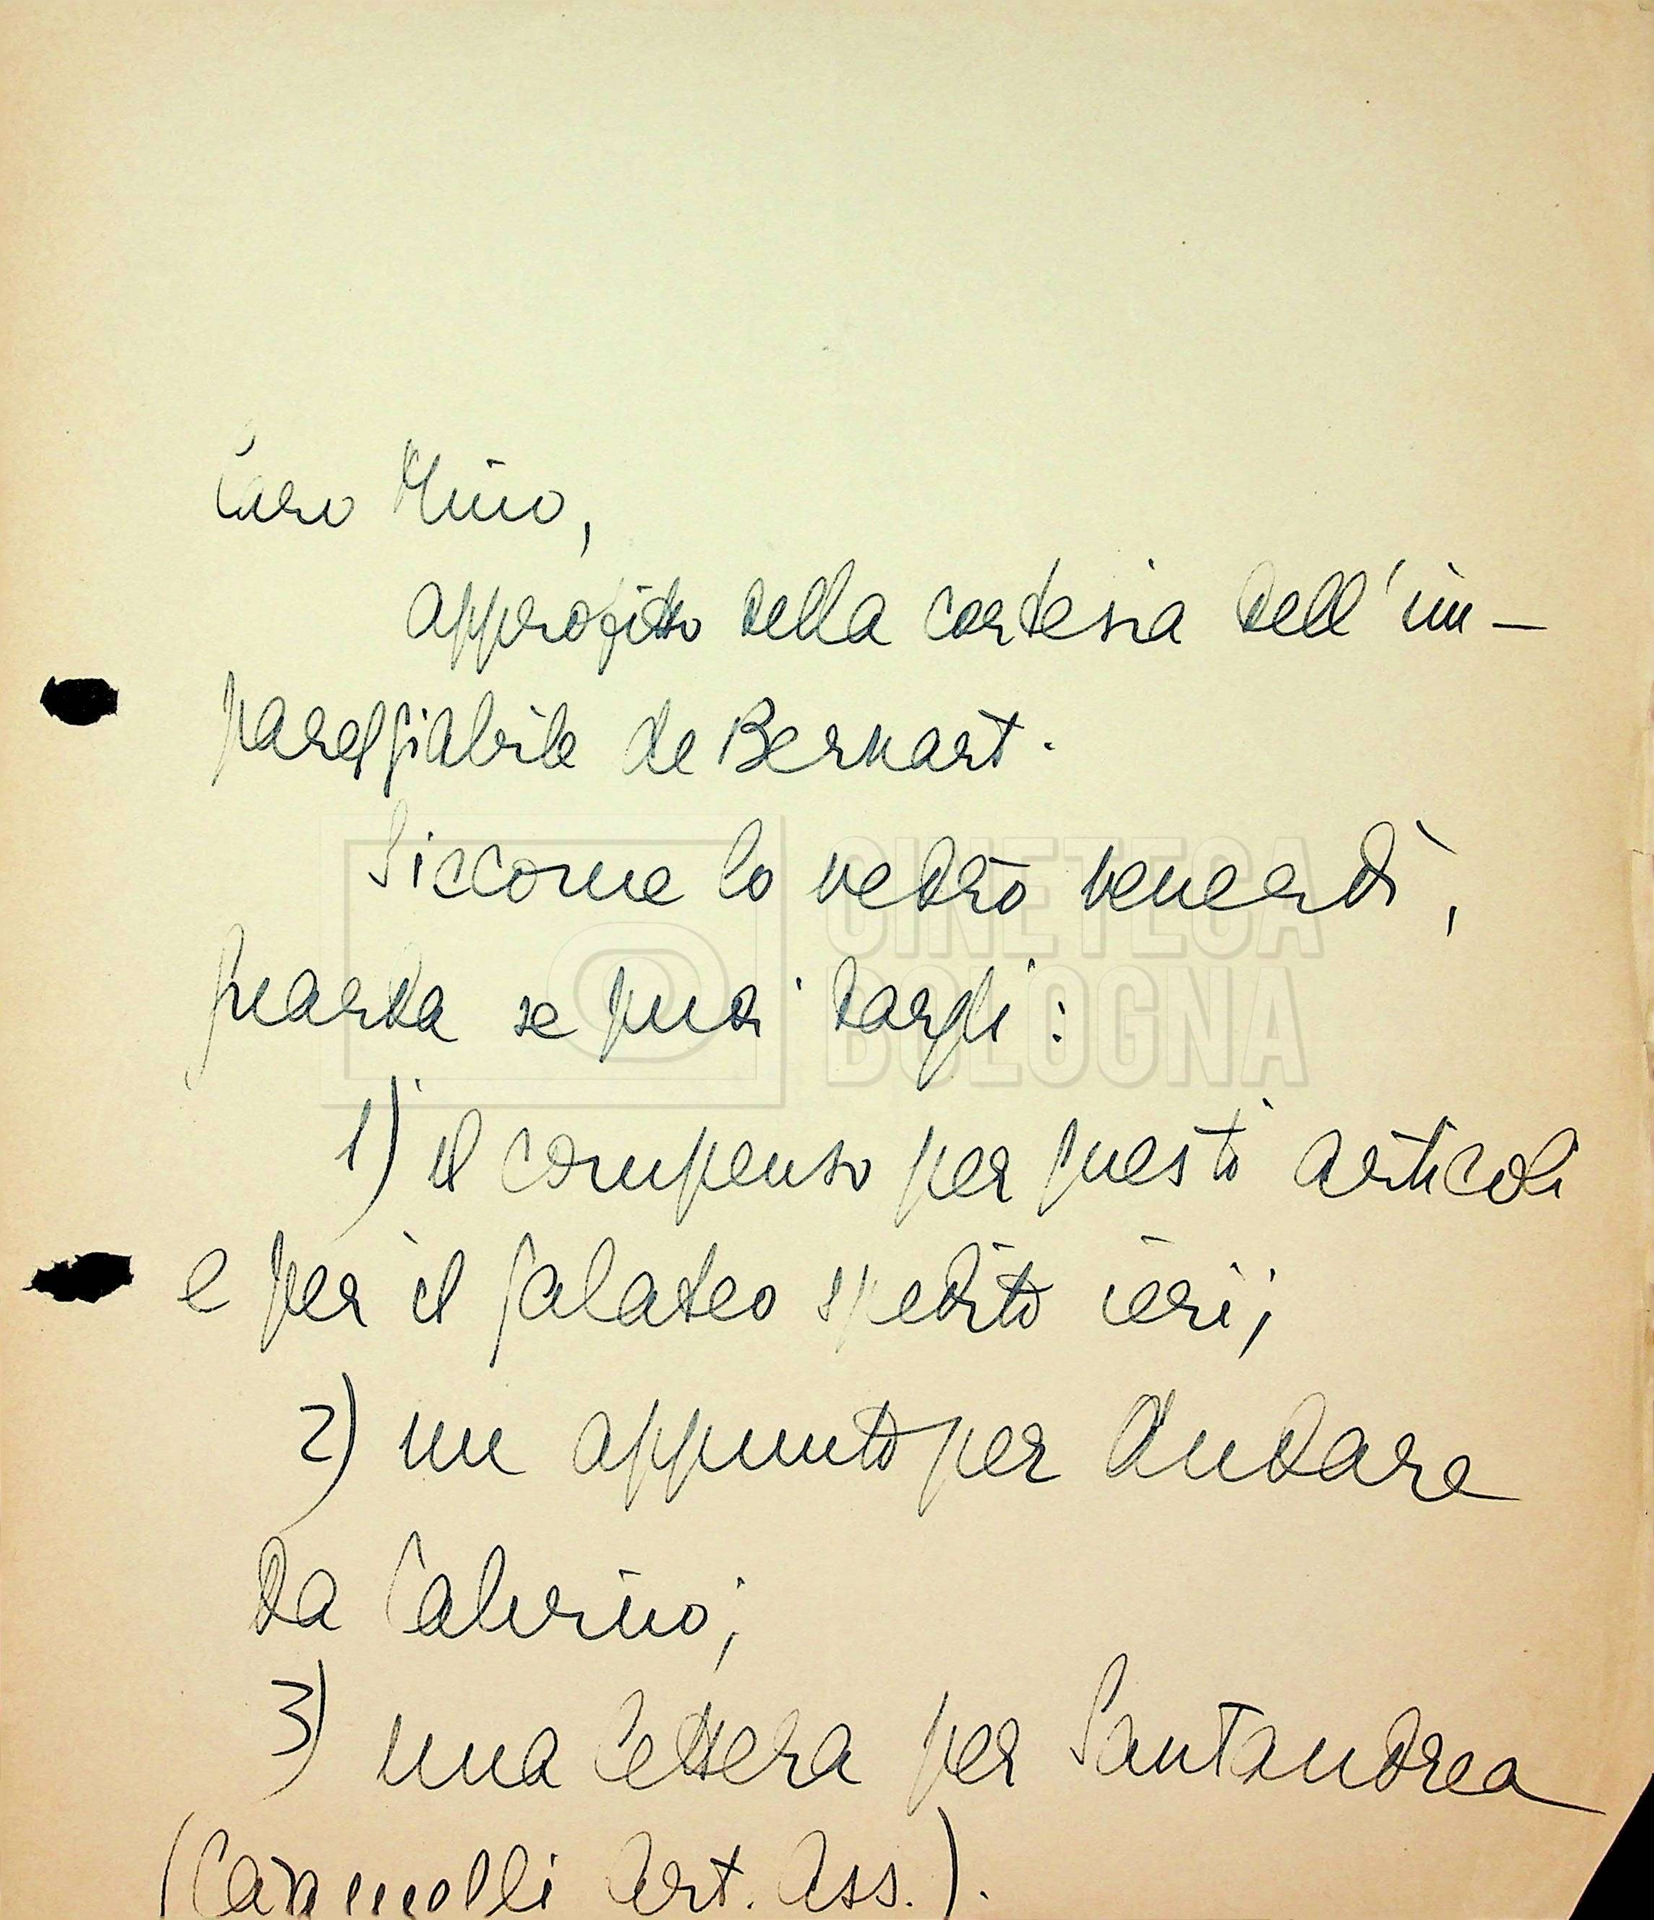 Caro Mino,
approfitto della cortesia dell'im-
pareggiabile de Bernart.
Siccome lo vedrò venerdì,
guarda se puoi dargli:
1) il compenso per questi articoli
e per il galateo spedito ieri;
2) un appunto per andare
da Calvino;
3) una lettera per Santandrea
( Art. Ass.).
CINETECA
BOLOGNA